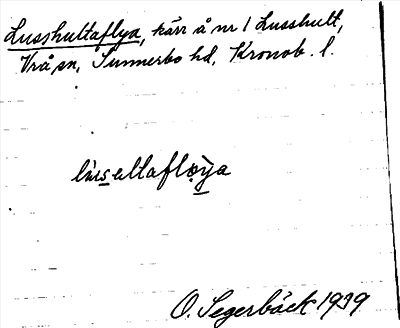 Lusshultaflya, kärr å nr 1 Lusshult,
Vrå sn, Sunnerbo hd, Kronob. l.
O. Segerbäck 1939